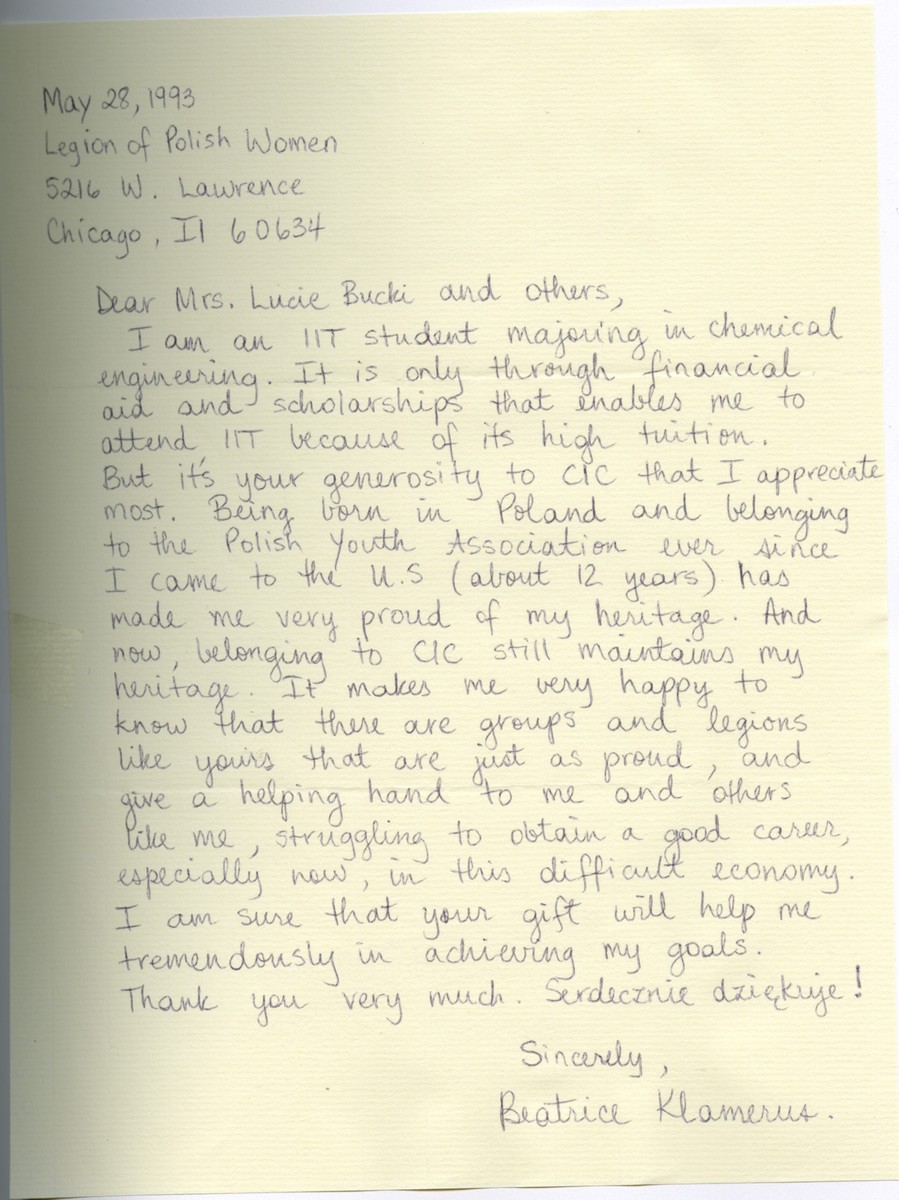 May 28, 1993
Legion of Polish Women
5216 W. Lawrence
Chicago, Il 60634
Dear Mrs. Lucie Bucki and others,
I am an IIT student majoring in chemical
engineering. It is only through financial
aid and scholarships that enables me to
attend IIT because of its high tuition.
But it's your generosity to CIC that I appreciate
most. Being born in Poland and belonging
to the Polish Youth Association ever since
I came to the U.S (about 12 years) has
made me very proud of my heritage. And
now, belonging to CIC still maintains my
heritage. It makes me very happy to
know that there are groups and legions
like yours that are just as proud, and
give a helping hand to me and others
like me, struggling to obtain a good career,
especially now, in this difficult economy.
I am sure that your gift will help me
tremendously in achieving my goals.
Thank you very much. Serdecznie dziękuje!
Sincerely,
Beatrice Klamerus.